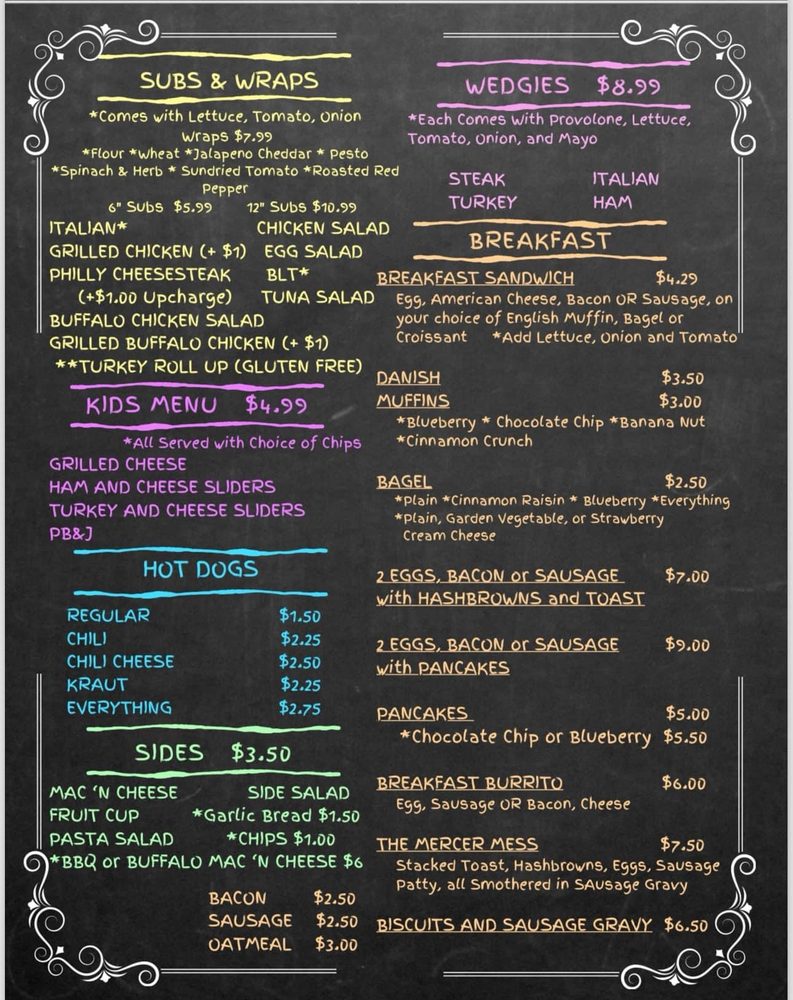 SUBS & WRAPS
*Comes with Lettuce, Tomato, Onion
Wraps $7.99
*Flour *Wheat *Jalapeno Cheddar * Pesto
*Spinach & Herb * Sundried Tomato *Roasted Red
Pepper
6" Subs $5.99 12" Subs $10.99
ITALIAN* CHICKEN SALAD
GRILLED CHICKEN (+ $1) EGG SALAD
PHILLY CHEESESTEAK BLT*
(+$1.00 Upcharge) TUNA SALAD
BUFFALO CHICKEN SALAD
GRILLED BUFFALO CHICKEN (+ $1)
**TURKEY ROLL UP (GLUTEN FREE)
KIDS MENU $4.99
*All Served with Choice of Chips
GRILLED CHEESE
HAM AND CHEESE SLIDERS
TURKEY AND CHEESE SLIDERS
PB&J
HOT DOGS
REGULAR $1.50
CHILI $2.25
CHILI CHEESE $2.50
KRAUT $2.25
EVERYTHING $2.75
SIDES $3.50
MAC 'N CHEESE SIDE SALAD
FRUIT CUP *Garlic Bread $1.50
PASTA SALAD *CHIPS $1.00
*BBQ or BUFFALO MAC 'N CHEESE $6
BACON $2.50
SAUSAGE $2.50
OATMEAL $3.00
WEDGIES $8.99
*Each Comes With Provolone, Lettuce,
Tomato, Onion, and Mayo
STEAK ITALIAN
TURKEY HAM
BREAKFAST
BREAKFAST SANDWICH $4.29
Egg, American Cheese, Bacon OR Sausage, on
your choice of English Muffin, Bagel or
Croissant *Add Lettuce, Onion and Tomato
DANISH $3.50
MUFFINS $3.00
*Blueberry * Chocolate Chip *Banana Nut
*Cinnamon Crunch
BAGEL $2.50
*Plain *Cinnamon Raisin * Blueberry *Everything
*Plain, Garden Vegetable, or Strawberry
Cream Cheese
2 EGGS, BACON or SAUSAGE $7.00
with HASHBROWNS and TOAST
2 EGGS, BACON or SAUSAGE $9.00
with PANCAKES
PANCAKES $5.00
*Chocolate Chip or Blueberry $5.50
BREAKFAST BURRITO $6.00
Egg, Sausage OR Bacon, Cheese
THE MERCER MESS $7.50
Stacked Toast, Hashbrowns, Eggs, Sausage
Patty, all Smothered in SAusage Gravy
BISCUITS AND SAUSAGE GRAVY $6.50